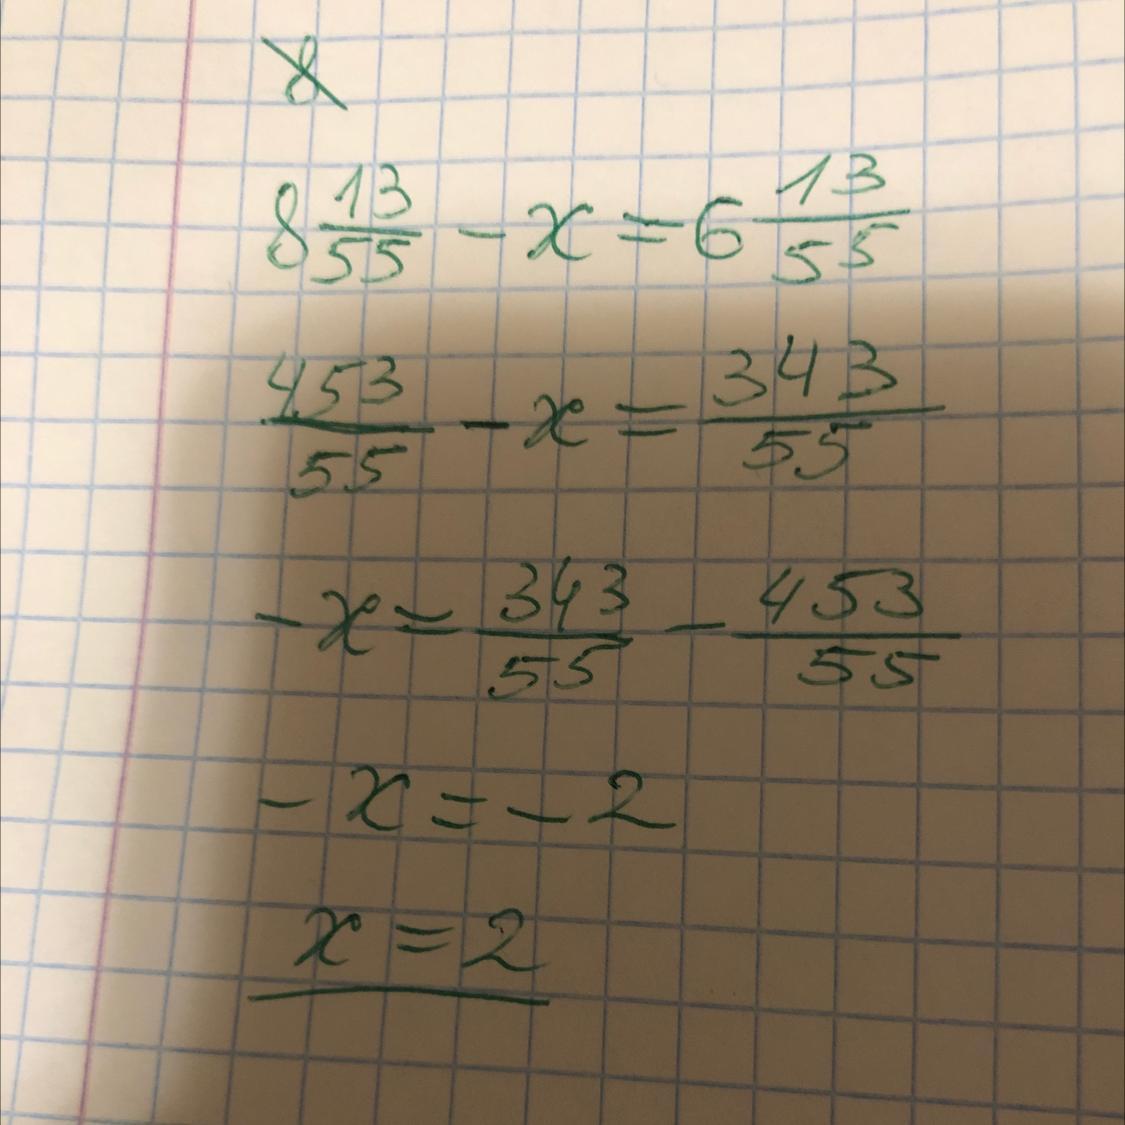 8
8 13/55 - x = 6 13/55
453/55 - x = 343/55
-x = 343/55 - 453/55
-x = -2
x = 2